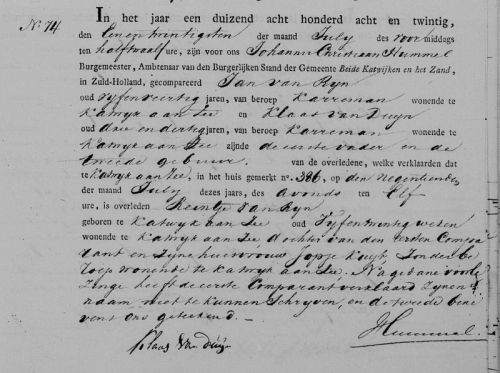 No. 74
In het jaar een duizend acht honderd acht en twintig,
den Eenentwintigsten der maand July des voor middags
ten half twaalf ure, zijn voor ons Johannes Christiaan Hummel
Burgemeester, Ambtenaar van den Burgerlijken Stand der Gemeente Beide Katwijken en het Zand,
in Zuid-Holland, gecompareerd Jan van Ryn
oud vyfenveertig jaren, van beroep Karreman wonende te
Katwyk aan Zee en Klaas van Duyn
oud drie en dertig jaren, van beroep Karreman wonende te
Katwyk aan Zee zijnde de eerste vader en de
tweede gebuur. van de overledene, welke verklaarden dat
te Katwyk aan Zee, in het huis gemerkt no. 386, op den negentienden
der maand July dezes jaars, des avonds ten Elf
ure, is overleden van Ryn
geboren te Katwyk aan Zee oud vyfentwintig weken
wonende te Katwyk aan Zee, dochter van den eersten Compa
rant en zyne huisvrouw Jopje Kuyt, zonder be
roep wonende te Katwyk aan Zee. Na gedane voorle
zinge heeft de eerste Comparant verklaard zynen
naam niet te kunnen schryven, en de tweede bene
vens ons geteekend.
Klaas van duijn
Hummel.